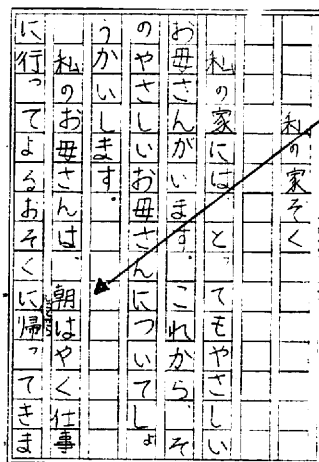 私の家そく
私の家には、とってもやさしい
お母さんがいます。これから、そ
のやさしいお母さんについてしょ
うかいします。
私のお母さんは、朝はやく仕事
に行ってよるおそくに帰ってきま